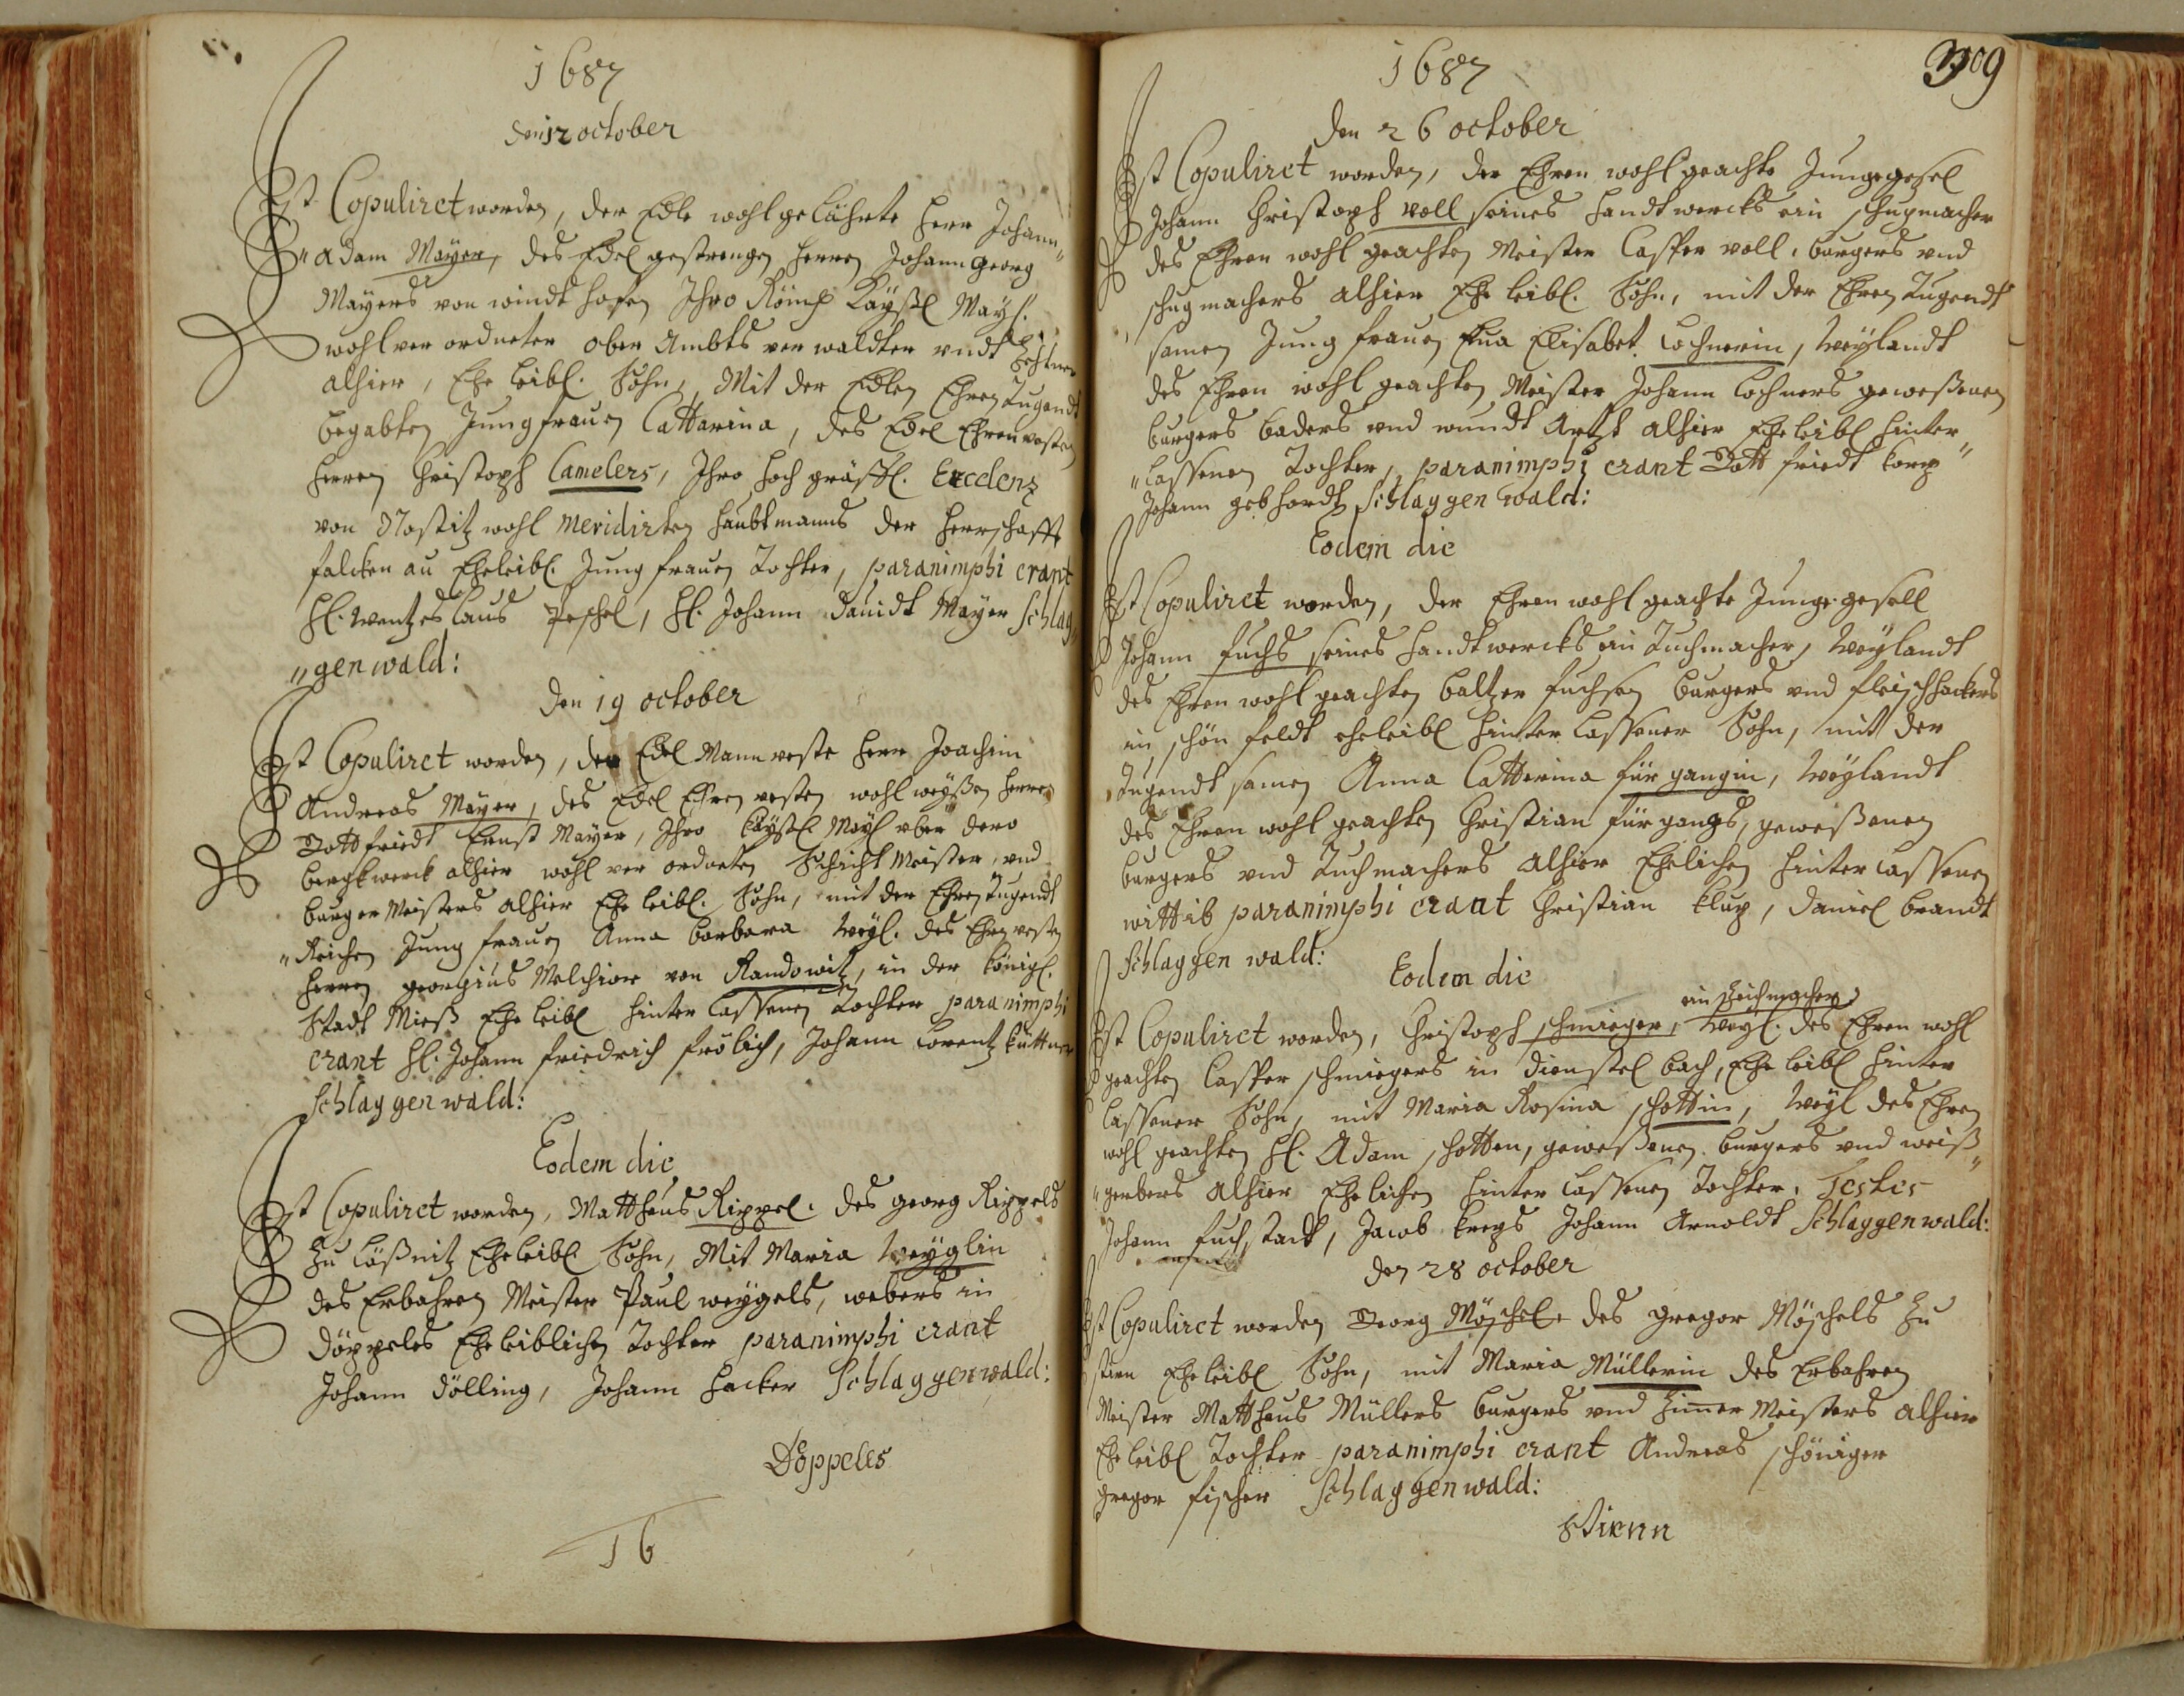 1687
den 12 october
Ist Copuliret worden, der Edle wohl gelährte Herr Johann„
„Adam Mayer, des Edel gestrengen Herren Johann Georg
Mayers von windt hofen Ihro Röml Kayßl Mayl.
wohl ver ordneter ober Ambts ver waldter undt Zehtner
alhier, Ehe leibl. Sohn, Mit der Edlen Ehren Tugendt
begabten Jungfrauen Cattarina, des Edel Ehren vesten
Herren Christoph Camelers, Ihro Hoch gräffl. Excelenz
von Nostitz wohl meridirten Haubtmanns der Herrschafft
falcken au Eheleibl. Jungfrauen Tochter, paranimphi erant
Hl. Wentzeslaus Peschel, Hl. Johann Davidt Mayer Schlag„
„genwald:
Den 19 october
Ist Copuliret worden, der Edel Mannveste Herr Joachim
Andreas Mayer, des Edel Ehren vesten wohl weyßen Herren
Gottfriedt Ernst Mayer, Ihro Kayßl. Mayl ober dero
bergkwerck alhier wohl ver ordneten Schicht Meister, und
burger Meisters alhier Ehe leibl. Sohn, mit der Ehren Tugendt
„Reichen Jungfrauen Anna barbara Weyl. des Ehren vesten
Herren georgius Melchior von Randowitz, in der Königl.
Stadt Mieß Ehe leibl hinter lassenen Tochter paranimphi
erant Hl. Johann friedrich frölich, Johann Lorentz küttner
Schlaggenwald:
Eodem die
Ist Copuliret worden, Matthäus Rippel. des georg Rippels
zu Lößnitz Eheleibl Sohn, Mit Maria Weyglin
des Erbahren Meister Paul weygels, webers in
Döppeles Eheleiblichen Tochter paranimphi erant
Johann Dölling, Johann Hacker Schlaggenwald:
Döppeles
16
1687
309
Den 26 october
Ist Copuliret worden, der Ehren wohl geachte Junggesel
Johann Christoph voll seines Handtwercks ein schugmacher
des Ehren wohl geachten Meister Casper voll, burgers und
schugmachers alhier Ehe leibl. Sohn, mit der Ehren Tugendt
samen Jungfrauen Eua Elisabet Lochnerin, Weylandt
des Ehren wohl geachten Meister Johann Lochners geweßenen
burgers baders und wundt Artzt alhier Eheleibl hinter„
„lassenen Tochter, paranimphi erant Gott friedt korp
Johann gebhardt Schlaggenwald:
Eodem die
Ist Copuliret worden, der Ehren wohl geachte Junggesell
Johann fuchs seines Handtwercks ein Tuchmacher, Weylandt
des Ehren wohl geachten baltzer fuchsen burgers und fleischhackers
in schön feldt eheleibl hinter lassener Sohn, mit der
Tugendt samen Anna Catterina fürgangin, Weylandt
des Ehren wohl geachten Christian fürgangs, geweßenen
burgers und Tuchmachers alhier Ehelichen hinterlassenen
wittib paranimphi erant Christian klug, Daniel brandt
Schlaggenwald:
Eodem die
Ist Copuliret worden, Christoph schmieger, Weyl. des Ehren wohl
geachten Casper schmiegers in Dienstel bach, Ehe leibl hinter
lassener Sohn, mit Maria Rosina schottin, Weyl des Ehren
wohl geachten Hl. Adam schotten, geweßenen burgers und weiß„
„gerbers alhier Ehelichen hinter lassenen Tochter. Testes
Johann fuchstadt, Jacob kregs Johann Arnoldt Schlaggenwald:
Den 28 october
Ist Copuliret worden Georg Möschel des gregor Möschels zu
stirn Eheleibl Sohn, mit Maria Müllerin des Erbahren
Meister Matthäus Müllers burgers und Zimer Meisters alhier
Eheleibl Tochter paranimphi erant Andreas schöniger
gregor fischer Schlaggenwald:
Stirnn